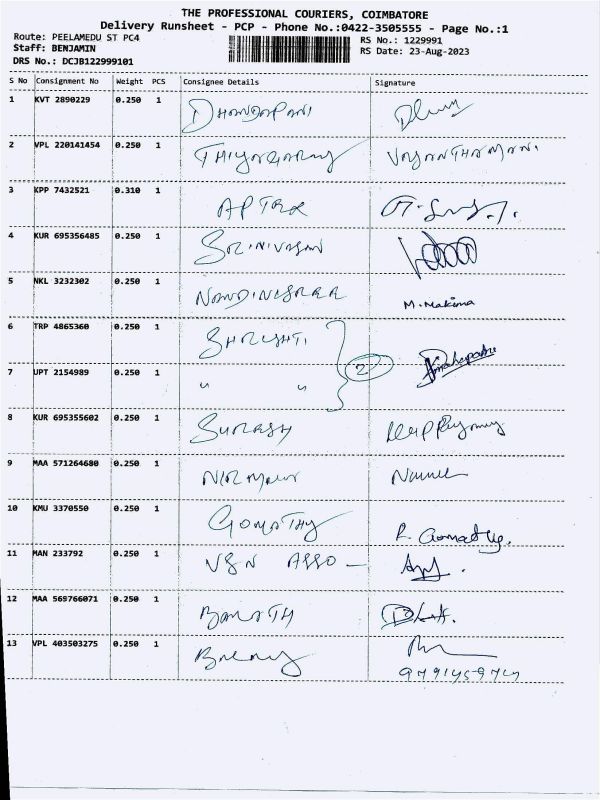 THE PROFESSIONAL COURIERS, COIMBATORE
Delivery Runsheet - PCP - Phone No.:0422-3505555 - Page No.:1
Route: PEELAMEDU ST PC4 RS No.: 1229991
Staff: BENJAMIN RS Date: 23-Aug-2023
DRS No.: DCJB122999101
S No Consignment No Weight PCS Consignee Details Signature
1 KVT 2890229 0.250 1
DHANDAPANI
2 VPL 220141454 0.250 1
THIYAGARAJ
3 KPP 7432521 0.310 1
APTRA
4 KUR 695356485 0.250 1
SRINIVASAN
5 NKL 3232302 0.250 1
NANDINISREE M.Makima
6 TRP 4865360 0.250 1
SHRISHTI
2
7 UPT 2154989 0.250 1
" "
8 KUR 695355602 0.250 1
SURESH
9 MAA 571264680 0.250 1
NIRMAL
10 KMU 3370550 0.250 1
GOMATHY R. Gomathy.
11 MAN 233792 0.250 1
VSN ASSO
12 MAA 569766071 0.250 1
BARATH
13 VPL 403503275 0.250 1